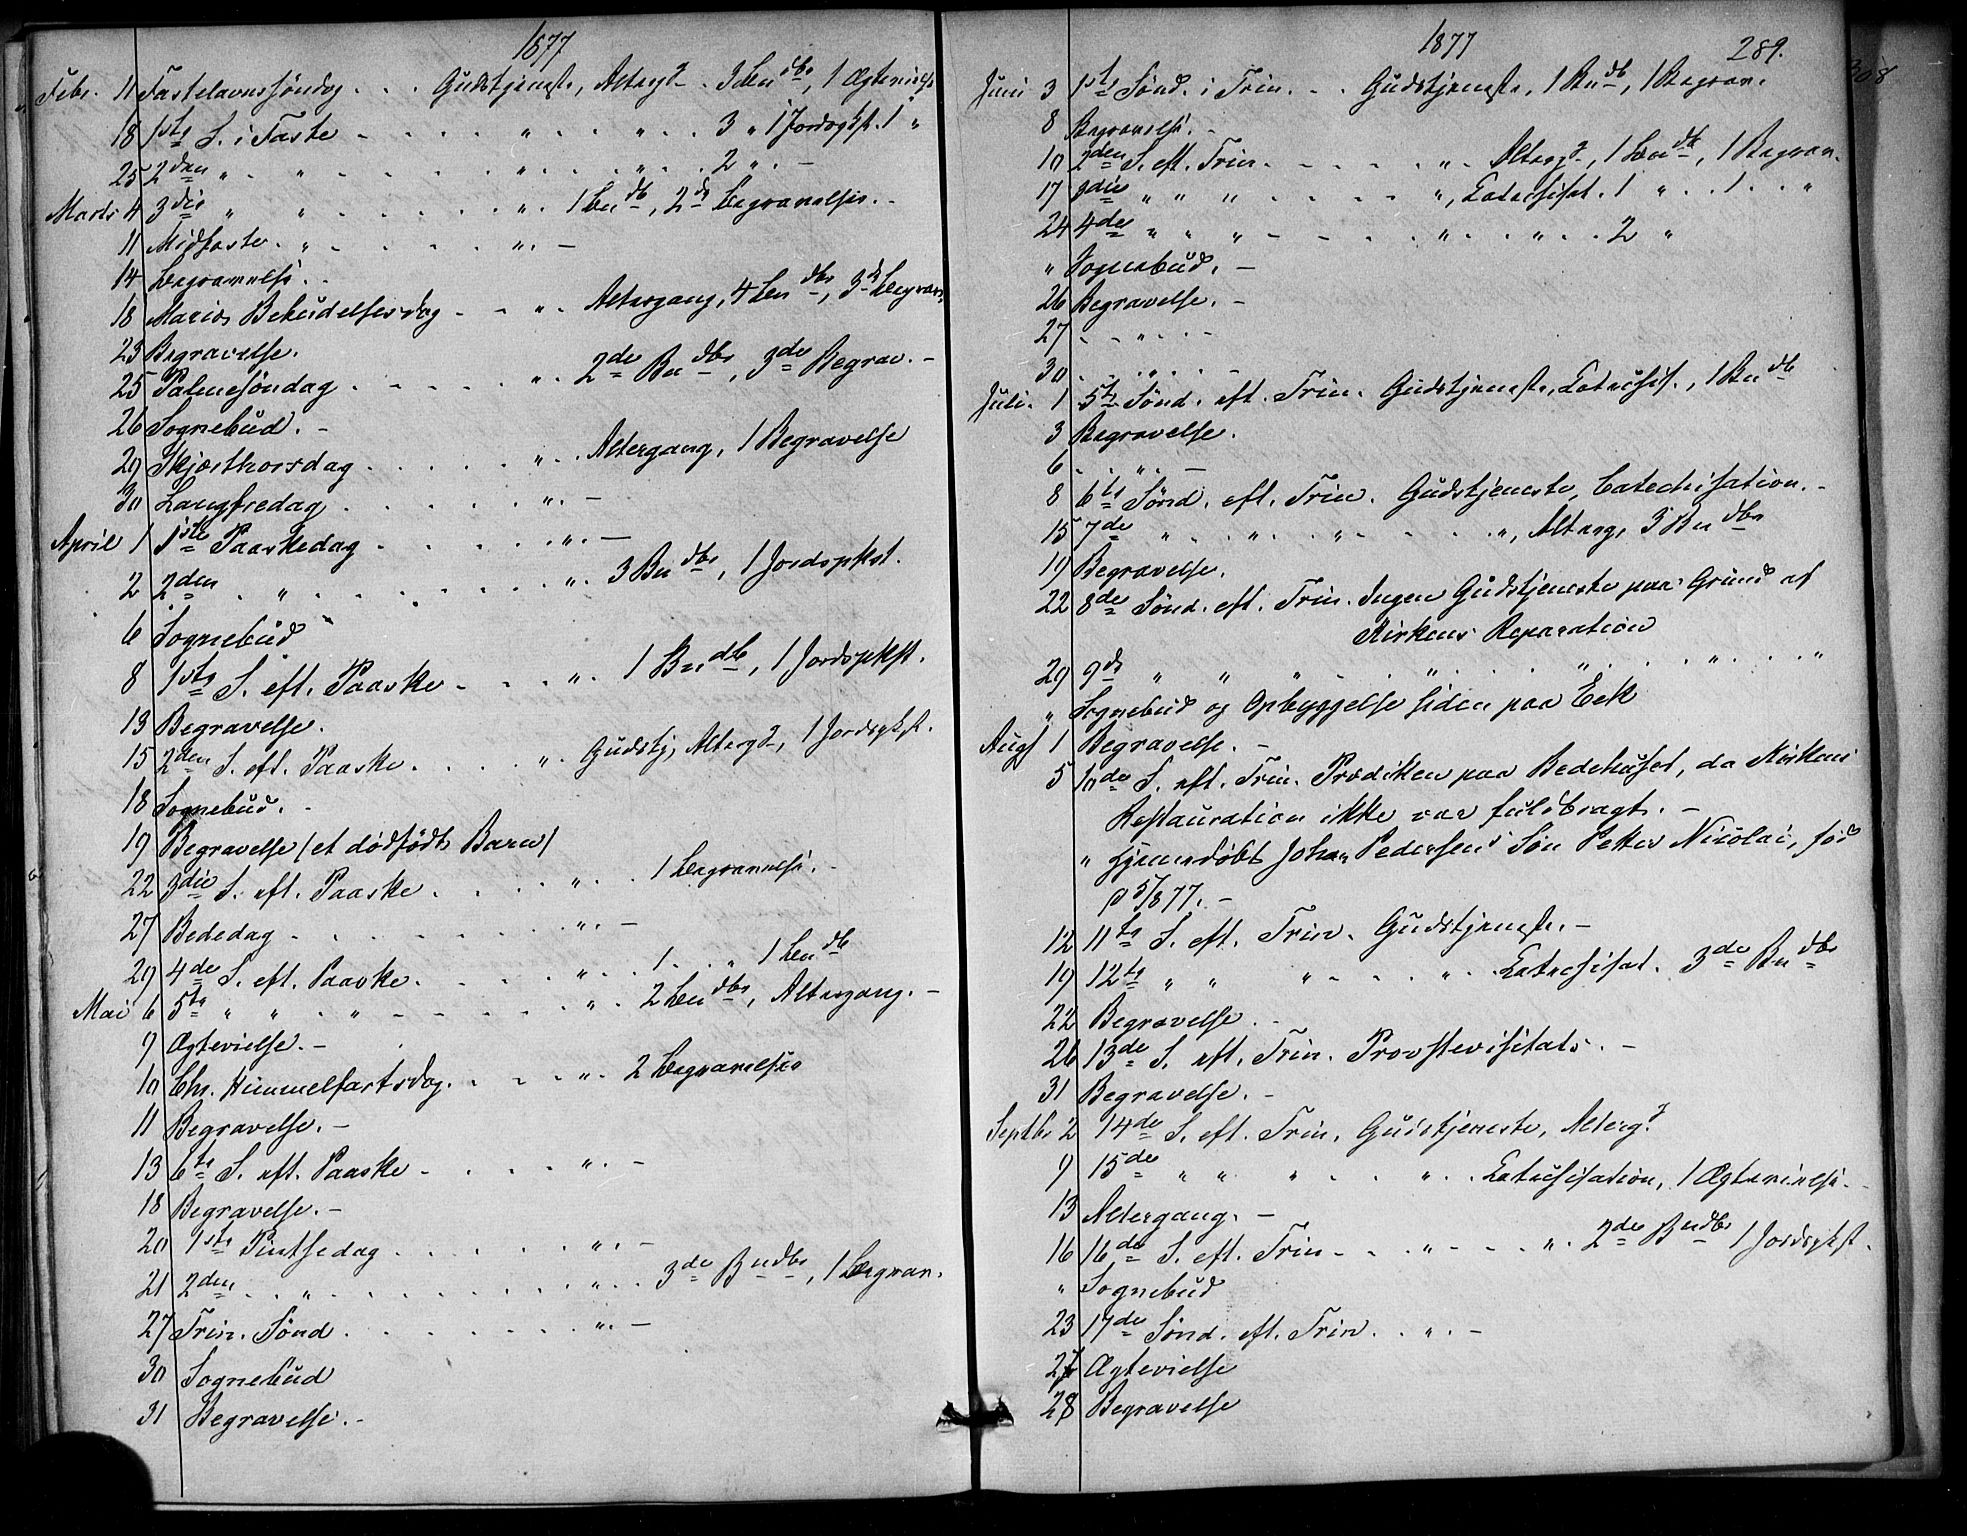 1877
Febr. 11 Fastelavnssöndag . . . Gudstjeneste, Altergg . 3 Bndb, 1 Ægtevielse
18 1ste S. i Faste . . . . . " . . " . . 3 " 1 Jordspkst. 1 "
25 2den " . " . . . . . " . . . " . . 2 " . –
Marts 4 3die " " . . . . . " . 1 Bndb, 2de Begravelser. –
11 Midfaste. " . . . . . " . –
14 Begravelse. –
18 Mariæ Bebudelsesdag . . . " . Altergang, 4 Bndb, 3de Begrav.
23 Begravelse.
25 Palmesöndag . . . . . " . 2de Bndbr, 3de Begrav. –
26 Sognebud. –
29 Skjærthorsdag . . . . . " . . Altergang, 1 Begravelse
30 Langfredag . . . . . " . –
April 1 1ste Paaskedag . . . . . " . –
2 2den . " . . . . . . . " . 3 Bndbr, 1 Jordspkst.
6 Sognebud
8 1ste S. eft. Paaske . . . . " . . 1 Bndb, 1 Jordspkst.
13 Begravelse.
15 2den S. eft. Paaske . . . . " . . Gudstj, Altergg, 1 Jordspkst.
18 Sognebud. –
19 Begravelse (et dödfödt Barn)
22 3die S. eft. Paaske . . . . " . . 1 Begravelse. –
27 Bededag . . . . . . . " . –
29 4de S. eft. Paaske . . . . " . . 1 . . " 1 Bndb
Mai 6 5te " " . " . . . . . " . 2 Bndbr, Altergang. –
9 Ægtevielse. –
10 Chr. Himmelfartsdag. . . . " . 2 Begravelser
11 Begravelse. –
13 6te S. eft. Paaske . . . . . " . –
18 Begravelse. –
20 1ste Pintsedag . . . . . " . –
21 2den . . " . . . . . . . " . . 3de Bndbr, 1 Begrav.
27 Trin. Sönd . . . . . . . " . –
30 Sognebud
31 Begravelse. –
1877 289.
Juni 3 1ste Sönd. i Trin. . . Gudstjeneste, 1 Bndb, 1 Begrav.
8 Begravelse. –
10 2den S. eft. Trin. . . . . " . Altergg, 1 Bndb, 1 Begrav.
17 3die " " " . . . . ", Catechisat. 1 " . . 1 . . "
24 4de " " " . . . . " . . " . . 2 "
" Sognebud. –
26 Begravelse. –
27 . . " . . –
30 . . " . . –
Juli. 1 5te Sönd. eft. Trin. Gudstjeneste, Catechis., 1 Bndb
3 Begravelse.
6 . . " . –
8 6te Sönd. eft. Trin. Gudstjeneste, Catechisation. –
15 7de " . " . " . . . . ", Alterg, 3 Bndbr
19 Begravelse.
22 8de Sönd. eft. Trin. Ingen Gudstjeneste paa Grund af
Kirkens Reparation
29 9de " " " . . . " . . . " . . . " . . "
" Sognebud og Opbyggelse siden paa Eek
Augs 1 Begravelse. –
5 10de S. eft. Trin. Prædiken paa Bedehuset, da Kirkens
Restauration ikke var fuldbragt. –
" hjemmedöbt Johan Pedersens Sön Petter Nicolai, föd
p 5/8 77. –
12 11te S. eft. Trin. Gudstjeneste. –
19 12te " " " . . . " . Catechisat. 3de Bndbr
22 Begravelse . –
26 13de S. eft. Trin. Provstevisitats. –
31 Begravelse. –
Septbr 2 14de S. eft. Trin. Gudstjeneste, Alterg.
9 15de " " " . . " . . Catechisation, 1 Ægtevielse. –
13 Altergang. –
16 16de S. eft. Trin. . . " . . . " . 2de Bndbr 1 Jordspkst.
" Sognebud
23 17de Sönd. eft. Trin. . . " . –
27 Ægtevielse
28 Begravelse
308